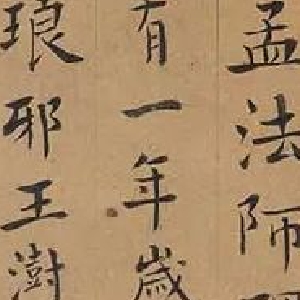 孟法师
有一年歲
琅邪王澍